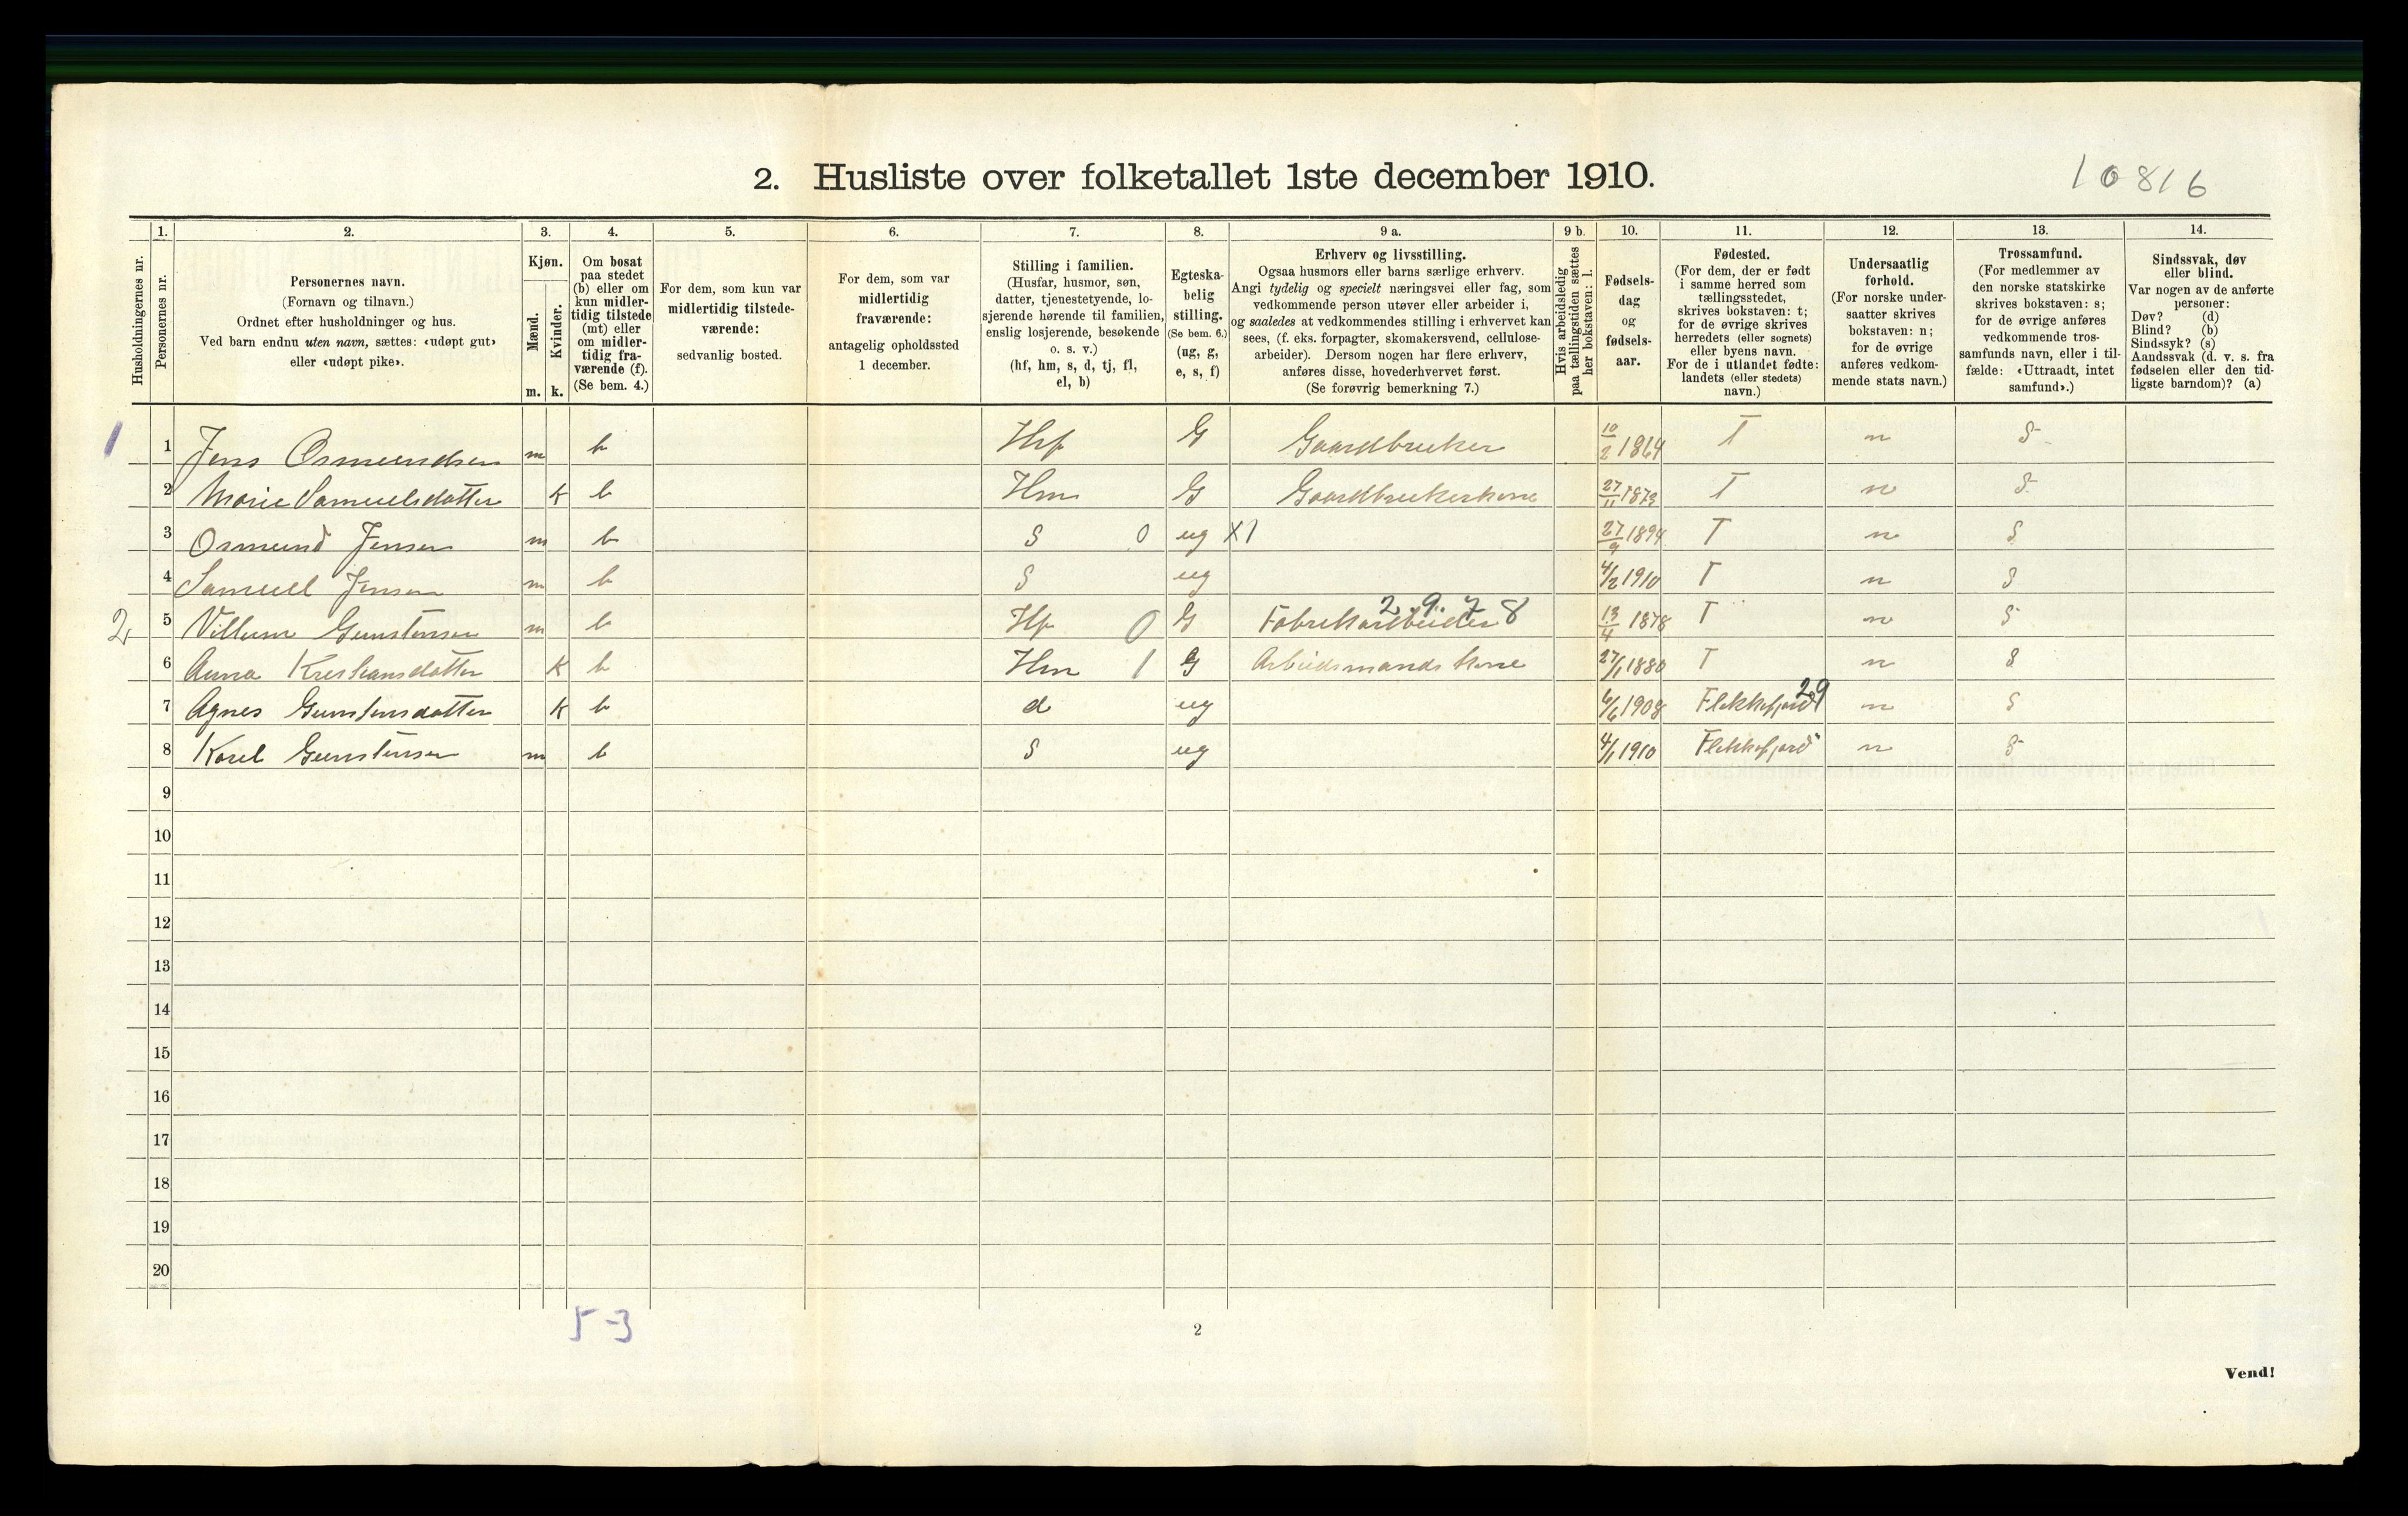 2. Husliste over folketallet 1ste december 1910.
10816
1. 2. 3. 4. 5. 6. 7. 8. 9 a. 9 b. 10. 11. 12. 13. 14.
Husholdningernes nr.
Personernes nr.
Personernes navn.
(Fornavn og tilnavn.)
Ordnet efter husholdninger og hus.
Ved barn endnu uten navn, sættes: «udøpt gut»
eller «udøpt pike».
Kjøn.
Mænd.
Kvinder.
m. k.
Om bosat
paa stedet
(b) eller om
kun midler-
tidig tilstede
(mt) eller
om midler-
tidig fra-
værende (f).
(Se bem. 4.)
For dem, som kun var
midlertidig tilstede-
værende:
sedvanlig bosted.
For dem, som var
midlertidig
fraværende:
antagelig opholdssted
1 december.
Stilling i familien.
(Husfar, husmor, søn,
datter, tjenestetyende, lo-
sjerende hørende til familien,
enslig losjerende, besøkende
o. s. v.)
(hf, hm, s, d, tj, fl,
el, b)
Egteska-
belig
stilling.
(Se bem. 6.)
(ug, g,
e, s, f)
Erhverv og livsstilling.
Ogsaa husmors eller barns særlige erhverv.
Angi tydelig og specielt næringsvei eller fag, som
vedkommende person utøver eller arbeider i,
og saaledes at vedkommendes stilling i erhvervet kan
sees, (f. eks. forpagter, skomakersvend, cellulose-
arbeider). Dersom nogen har flere erhverv,
anføres disse, hovederhvervet først.
(Se forøvrig bemerkning 7.)
Hvis arbeidsledig
paa tællingstiden sættes
her bokstaven: l.
Fødsels-
dag
og
fødsels-
aar.
Fødested.
(For dem, der er født
i samme herred som
tællingsstedet,
skrives bokstaven: t;
for de øvrige skrives
herredets (eller sognets)
eller byens navn.
For de i utlandet fødte:
landets (eller stedets)
navn.)
Undersaatlig
forhold.
(For norske under-
saatter skrives
bokstaven: n;
for de øvrige
anføres vedkom-
mende stats navn.)
Trossamfund.
(For medlemmer av
den norske statskirke
skrives bokstaven: s;
for de øvrige anføres
vedkommende tros-
samfunds navn, eller i til-
fælde: «Uttraadt, intet
samfund».)
Sindssvak, døv
eller blind.
Var nogen av de anførte
personer:
Døv? (d)
Blind? (b)
Sindssyk? (s)
Aandssvak (d. v. s. fra
fødselen eller den tid-
ligste barndom)? (a)
1 1 Jens Osmundsen m b Hf G Gaardbruker 10/2 1864 T n S
2 Marie Samuelsdatter k b Hm G Gaardbrukerkone 27/11 1873 T n S
3 Osmund Jensen m b S 0 ug X1 27/9 1894 T n S
4 Samuel Jensen m b S ug 4/2 1910 T n S
2, 5 Villum Gunstensen m b Hf 0 G Fabrikarbeider 2.9.78 13/4 1878 T n S
6 Anna Kristiansdatter k b Hm 1 G Arbeidsmands kone 27/1 1880 T n S
7 Agnes Gunstensdatter k b d ug 6/6 1908 Flekkefjord 29 n S
8 Karel Gunstensen m b S ug 4/1 1910 Flekkefjord n S
9
10
11
12
13
14
15
16
17
18
19
20
5-3
2
Vend!